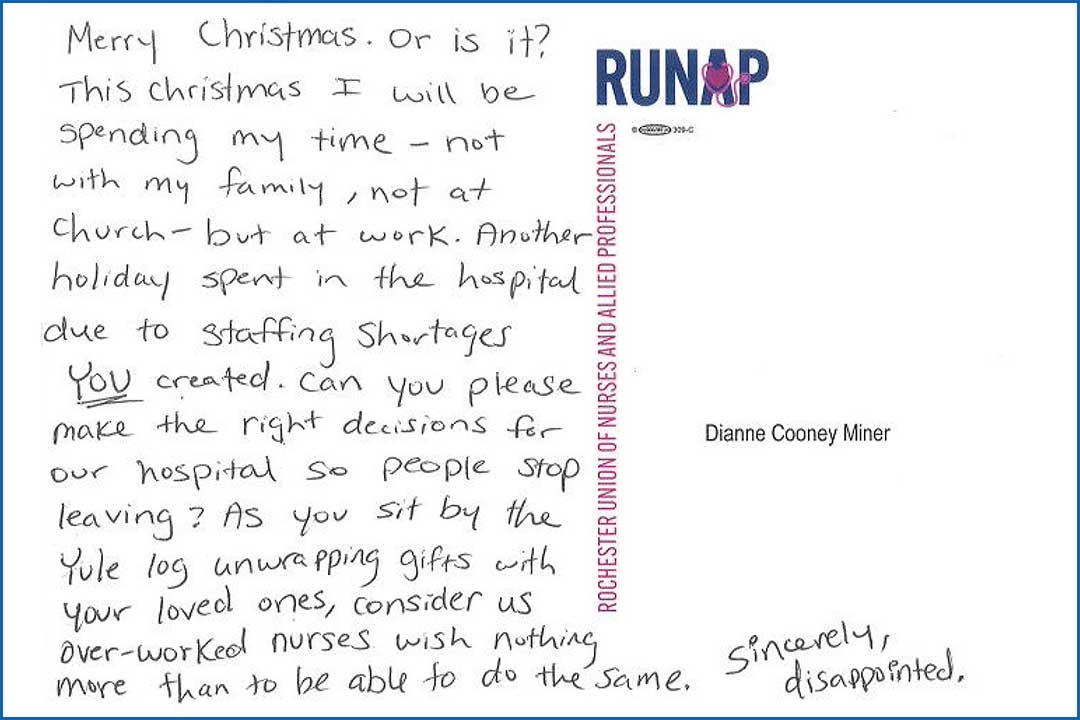 Merry Christmas. Or is it?
This christmas I will be
spending my time - not
with my family, not at
church - but at work. Another
holiday spent in the hospital
due to staffing shortages
YOU created. Can you please
make the right decisions for
our hospital so people stop
leaving? As you sit by the
Yule log unwrapping gifts with
your loved ones, consider us
over-worked nurses wish nothing
more than to be able to do the same.
Sincerely,
disappointed.
RUNAP
309-C
ROCHESTER UNION OF NURSES AND ALLIED PROFESSIONALS
Dianne Cooney Miner